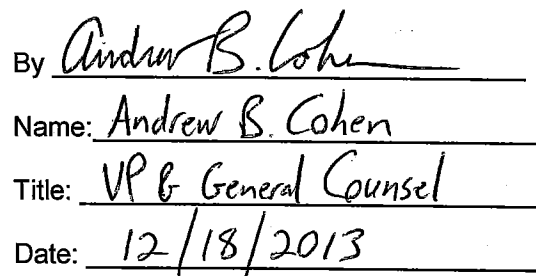 By Andrew B. Cohen
Name: Andrew B. Cohen
Title: VP & General Counsel
Date: 12/18/2013